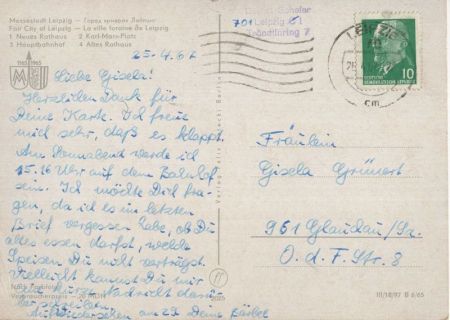 Messestadt Leipzig — Город ярмарок Лейпциг
Fair City of Leipzig — La ville foraine de Leipzig
1 Neues Rathaus 2 Karl-Marx-Platz
3 Hauptbahnhof 4 Altes Rathaus
1165 1965
25.4.67
Liebe Gisela!
Herzlichen Dank für
Deine Karte. Ich freue
mich sehr, daß es klappt.
Am Sonnabend werde ich
15.16 Uhr auf dem Bahnhof
sein. Ich möchte Dich fra-
gen, da ich es im letzten
Brief vergessen habe, ob Du
alles essen darfst, welche
Speisen Du nicht verträgst.
Vielleicht kannst Du mir
eine kurze Nachricht darü-
ber schreiben.
Auf Wiedersehen am 29. Deine Bärbel
701 Leipzig C 1
LEIPZIG
cm
DEUTSCHE
DEMOKRATISCHE REPUBLIK
10
Fräulein
Gisela Grünert
961 Glauchau/Sa.
O.d.F.Str. 8
III/18/97 B 6/65